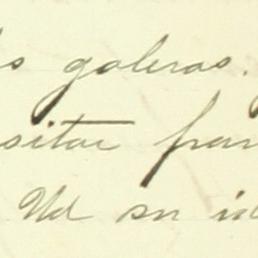 s galeras.
sitar fran
Ud su id